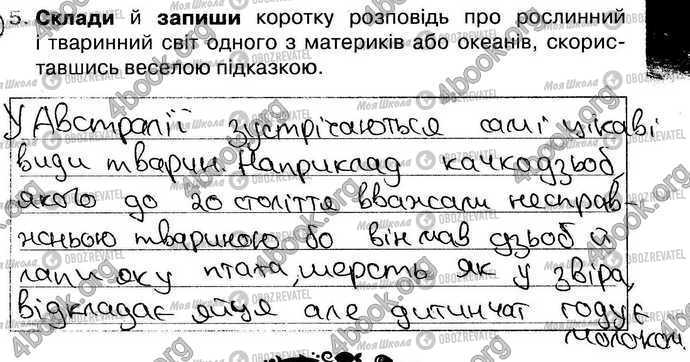 5. Склади й запиши коротку розповідь про рослинний
і тваринний світ одного з материків або океанів, скорис-
тавшись веселою підказкою.
У Австралії зустрічаються самі цікаві
види тварин. Наприклад качкодзьоб,
якого до 20 століття вважали несправ-
жньою твариною бо він мав дзьоб й
лапи як у птаха, шерсть як у звіра,
відкладає яйця але дитинчат годує
молоком.